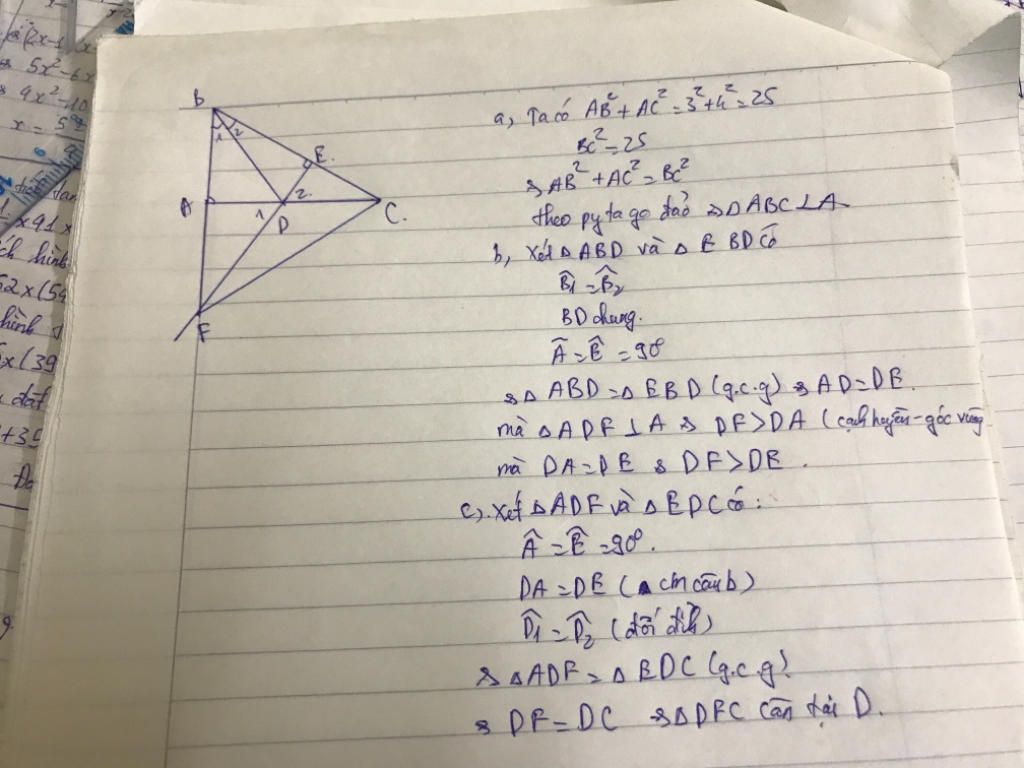 5x²-6x
x =
B
1 2
E.
A
2.
C.
1
D
F
a, Ta có AB² + AC² = 3² + 4² = 25
BC² = 25
⇒ AB² + AC² = BC²
theo pytago đảo ⇒ Δ ABC ⊥ A
b, Xét Δ ABD và Δ EBD có
B̂1 = B̂2
BD chung.
Â = Ê = 90°
⇒ Δ ABD = Δ EBD (g.c.g) ⇒ AD = DE.
mà Δ ADF ⊥ A ⇒ DF > DA (cạnh huyền - góc vuông
mà DA = DE ⇒ DF > DE.
c, Xét Δ ADF và Δ EDC có:
Â = Ê = 90°.
DA = DE (cm câu b)
D̂1 = D̂2 (đối đỉnh)
⇒ Δ ADF = Δ EDC (g.c.g)
⇒ DF = DC ⇒ Δ DFC cân tại D.